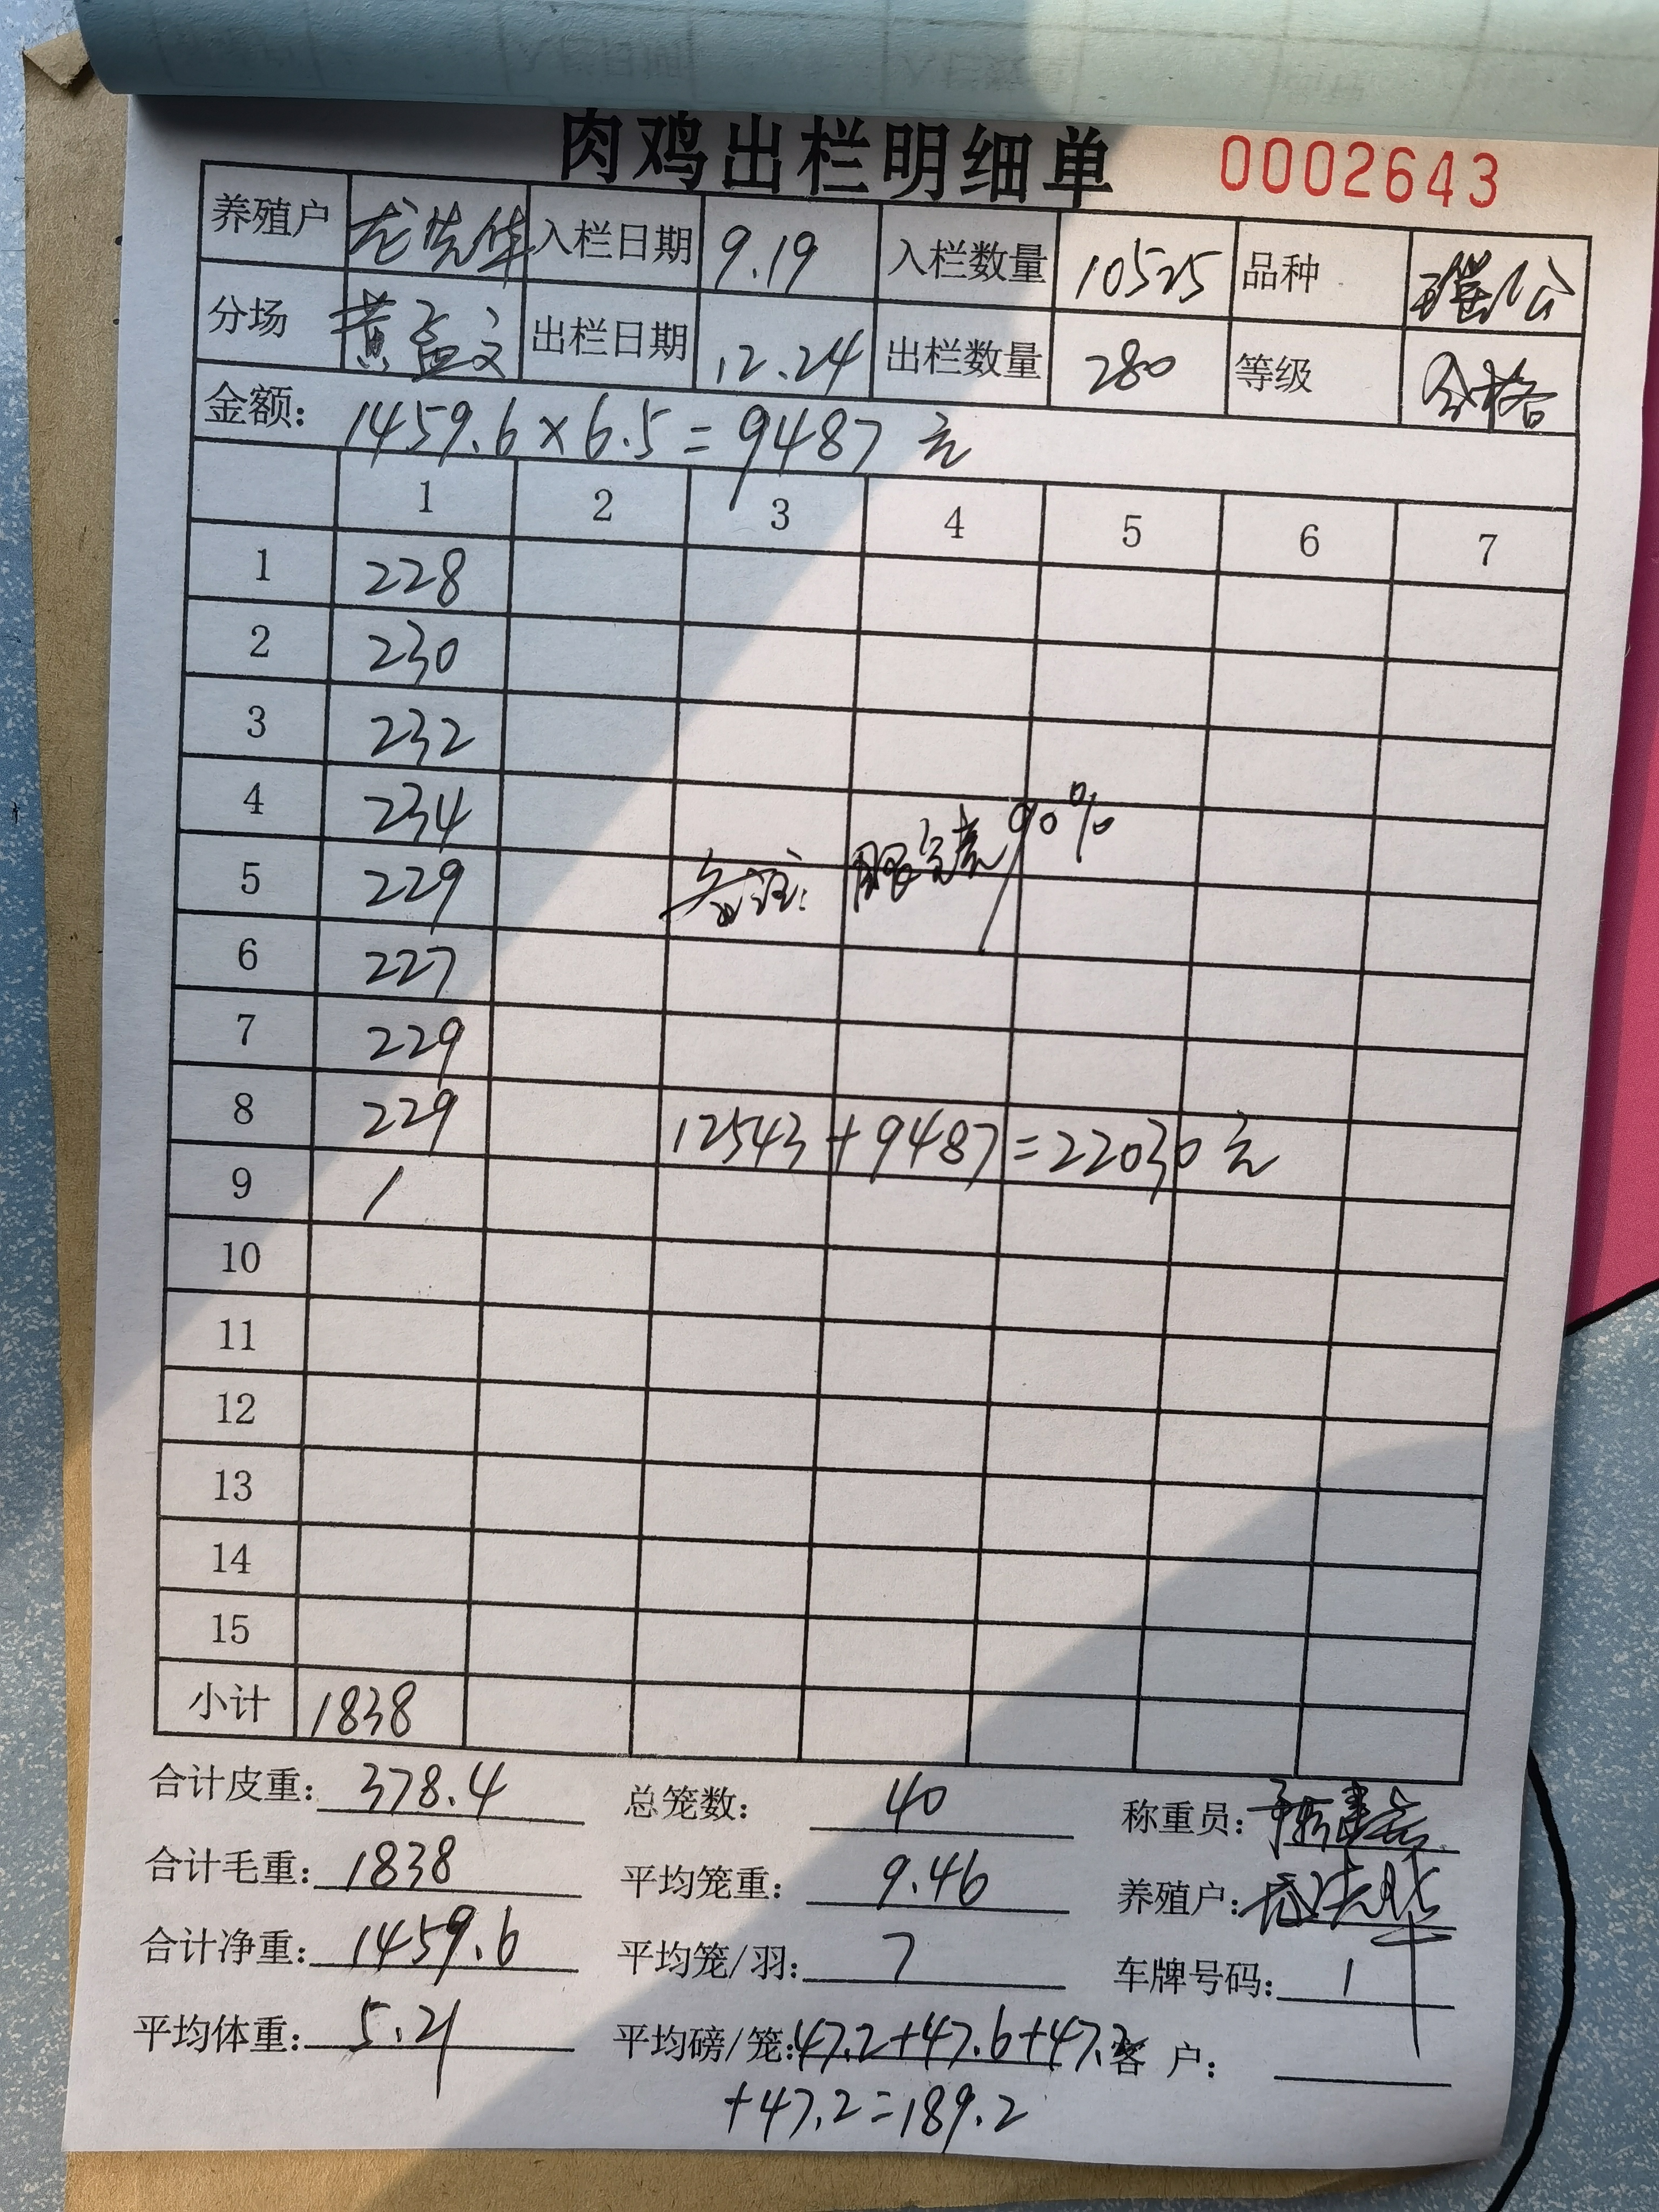 肉鸡出栏明细单 0002643
养殖户 龙先华 入栏日期 9.19 入栏数量 10525 品种
分场 黄孟文 出栏日期 12.24 出栏数量 280 等级 合格
金额: 1459.6×6.5=9487元
1 2 3 4 5 6 7
1 228
2 230
3 232
4 234
5 229 备注: 90%
6 227
7 229
8 229 12543+9487=22030元
9 /
10
11
12
13
14
15
小计 1838
合计皮重: 378.4 总笼数: 40 称重员:
合计毛重: 1838 平均笼重: 9.46 养殖户: 龙先华
合计净重: 1459.6 平均笼/羽: 7 车牌号码: 1
平均体重: 5.21 平均磅/笼: 47.2+47.6+47.2 客 户:
+47.2=189.2